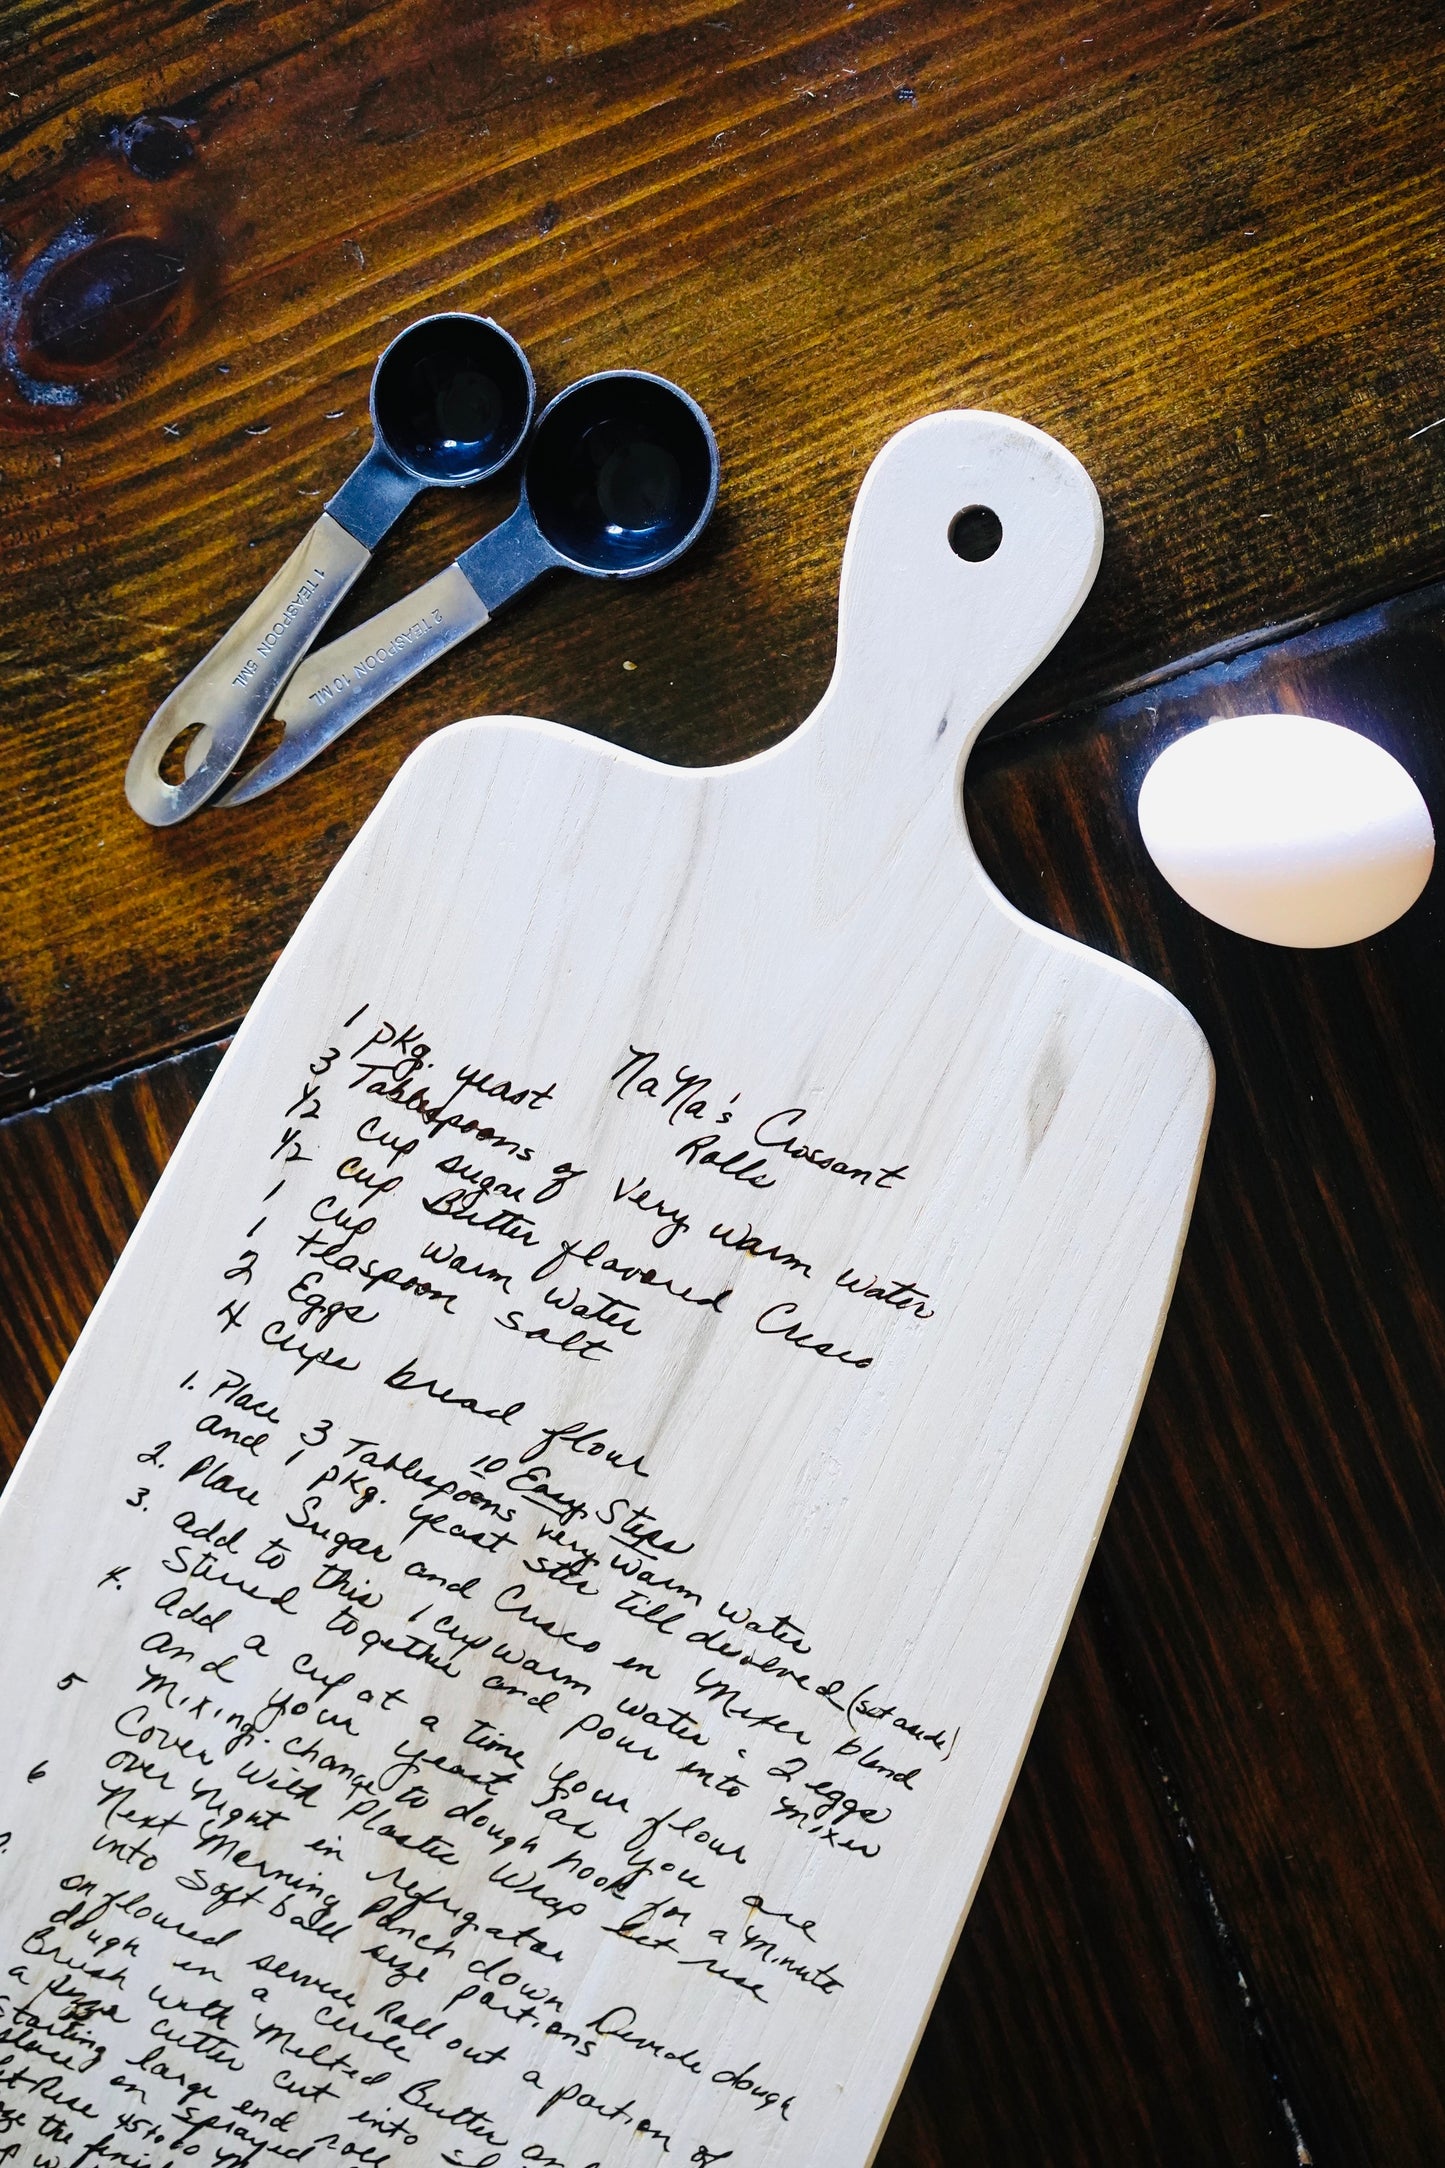 1 TEASPOON 5ML
2 TEASPOON 10 ML
NaNa's Crossant
Rolls
1 pkg. yeast
3 Tablespoons of very warm water
1/2 cup sugar
1/2 cup Butter flavored Crisco
1 cup warm water
1 teaspoon salt
2 Eggs
4 cups bread flour
10 Easy Steps
1. Place 3 Tablespoons very warm water
and 1 pkg. yeast stir till desolved (set aside)
2. Place Sugar and Crisco in Mixer blend
3. add to this 1 cup warm water - 2 eggs
Stirred together and pour into Mixer
4. add a cup at a time your flour
and your yeast as you are
Mixing. change to dough hook for a minute
5 Cover with Plastic Wrap let rise
over night in refrigator
6 Next Morning Punch down Devide dough
into Soft ball size portions
on floured service Roll out a portion of
dough in a circle
Brush with Melted Butter and
a pizza cutter cut into
starting large end roll
place on sprayed
let Rise 45 to 60
the